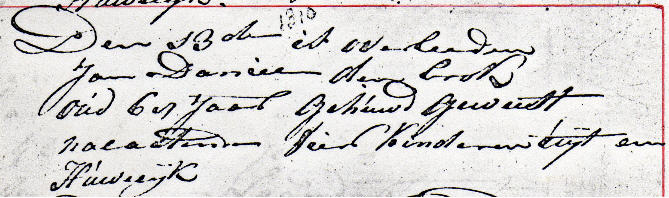 Huweeijk.
1810
Den 13 de is overleeden
Jan Daniel den brok
oud 67 Jaar Gehuwd Geweest
nalaatende vier kinderen uijt een
Huweeijk